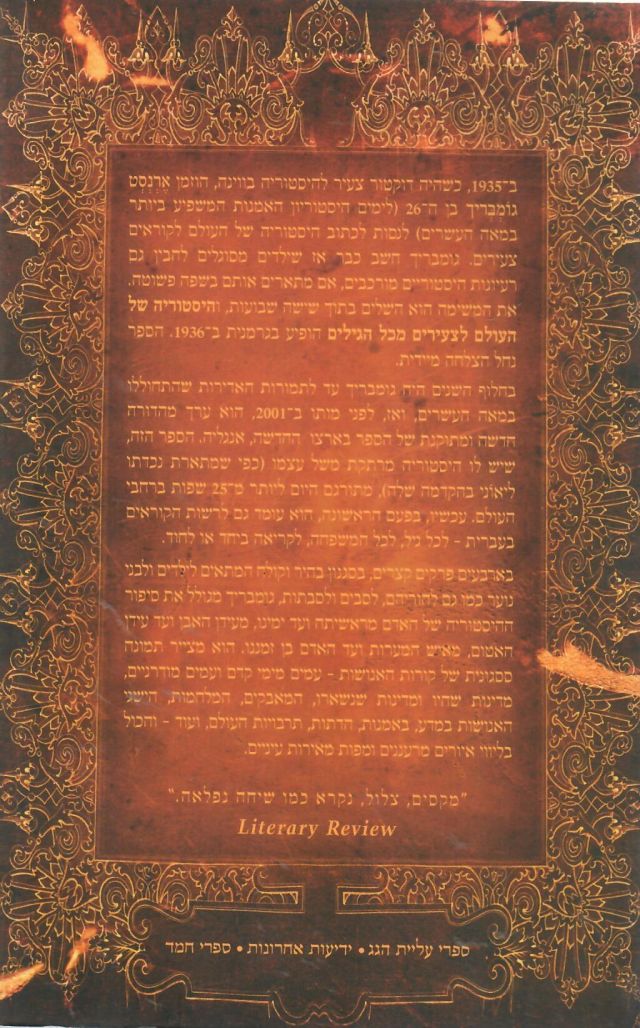 ב־1935, כשהיה דוקטור צעיר להיסטוריה בווינה, הוזמן אֶרְנְסט
גוֹמבריך בן ה־26 (לימים היסטוריון האמנות המשפיע ביותר
במאה העשרים) לנסות לכתוב היסטוריה של העולם לקוראים
צעירים. גומבריך חשב כבר אז שילדים מסוגלים להבין גם
רעיונות היסטוריים מורכבים, אם מתארים אותם בשפה פשוטה.
את המשימה הוא השלים בתוך שישה שבועות, והיסטוריה של
העולם לצעירים מכל הגילים הופיע בגרמנית ב־1936. הספר
נחל הצלחה מיידית.
בחלוף השנים היה גומבריך עד לתמורות האדירות שהתחוללו
במאה העשרים, ואז, לפני מותו ב־2001, הוא ערך מהדורה
חדשה ומתוקנת של הספר בארצו החדשה, אנגליה. הספר הזה,
שיש לו היסטוריה מרתקת משל עצמו (כפי שמתארת נכדתו
ליאוני בהקדמה שלה), מתורגם היום ליותר מ־25 שפות ברחבי
העולם. עכשיו, בפעם הראשונה, הוא עומד גם לרשות הקוראים
בעברית – לכל גיל, לכל המשפחה, לקריאה ביחד או לחוד.
בארבעים פרקים קצרים, בסגנון בהיר וקולח המתאים לילדים ולבני
נוער כמו גם להוריהם, לסבים ולסבתות, גומבריך מגולל את סיפור
ההיסטוריה של האדם מראשיתה ועד ימינו, מעידן האבן ועד עידן
האטום, מאיש המערות ועד האדם בן זמננו. הוא מצייר תמונה
ססגונית של קורות האנושות – עמים מימי קדם ועמים מודרניים,
מדינות שחיו ומדינות שנשארו, המאבקים, המלחמות, הישגי
האנושות במדע, באמנות, הדתות, תרבויות העולם, ועוד – והכול
בליווי איורים מרעננים ומפות מאירות עיניים.
"מקסים, צלול, נקרא כמו שיחה נפלאה."
Literary Review
ספרי עליית הגג • ידיעות אחרונות • ספרי חמד